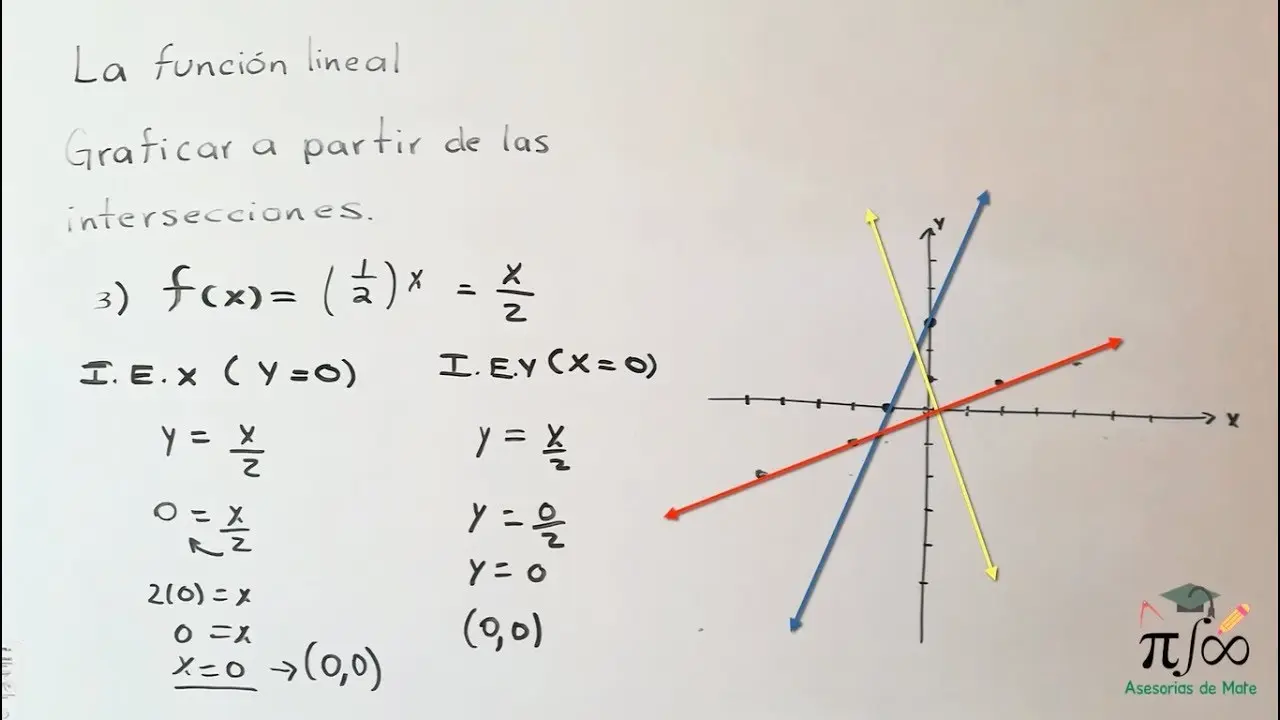 La función lineal
Graficar a partir de las
intersecciones.
3) f(x) = (1/2)x = x/2
I.E.X (Y=0)
y = x/2
0 = x/2
2(0) = x
0 = x
x = 0 → (0,0)
I.E.Y (X=0)
y = x/2
y = 0/2
y = 0
(0,0)
Y
X
π∫∞
Asesorías de Mate